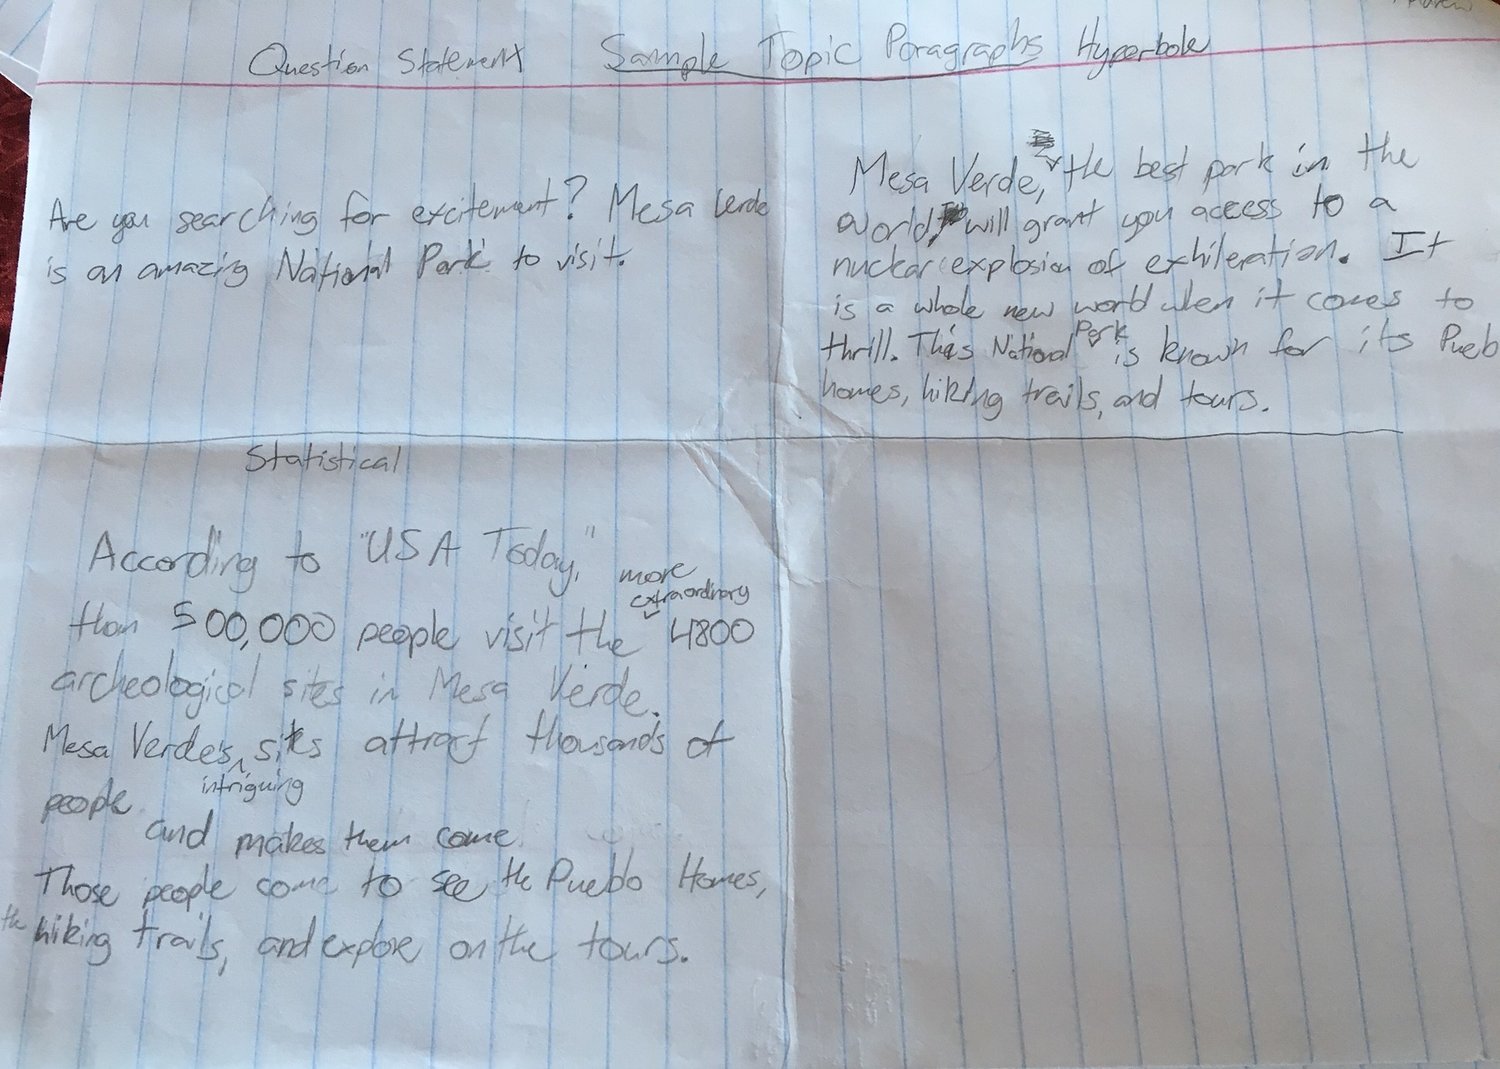 Question Statement
Sample Topic Paragraphs
Hyperbole
Are you searching for excitement? Mesa Verde
is an amazing National Park to visit.
Mesa Verde, the best park in the
world, will grant you access to a
nuclear explosion of exhileration. It
is a whole new world when it comes to
thrill. This National Park is known for its Pueb
homes, hiking trails, and tours.
Statistical
According to "USA Today," more
than 500,000 people visit the extraordinary 4800
archeological sites in Mesa Verde.
Mesa Verde's intriguing sites attract thousands of
people
and makes them come
Those people come to see the Pueblo Homes,
the hiking trails, and explore on the tours.